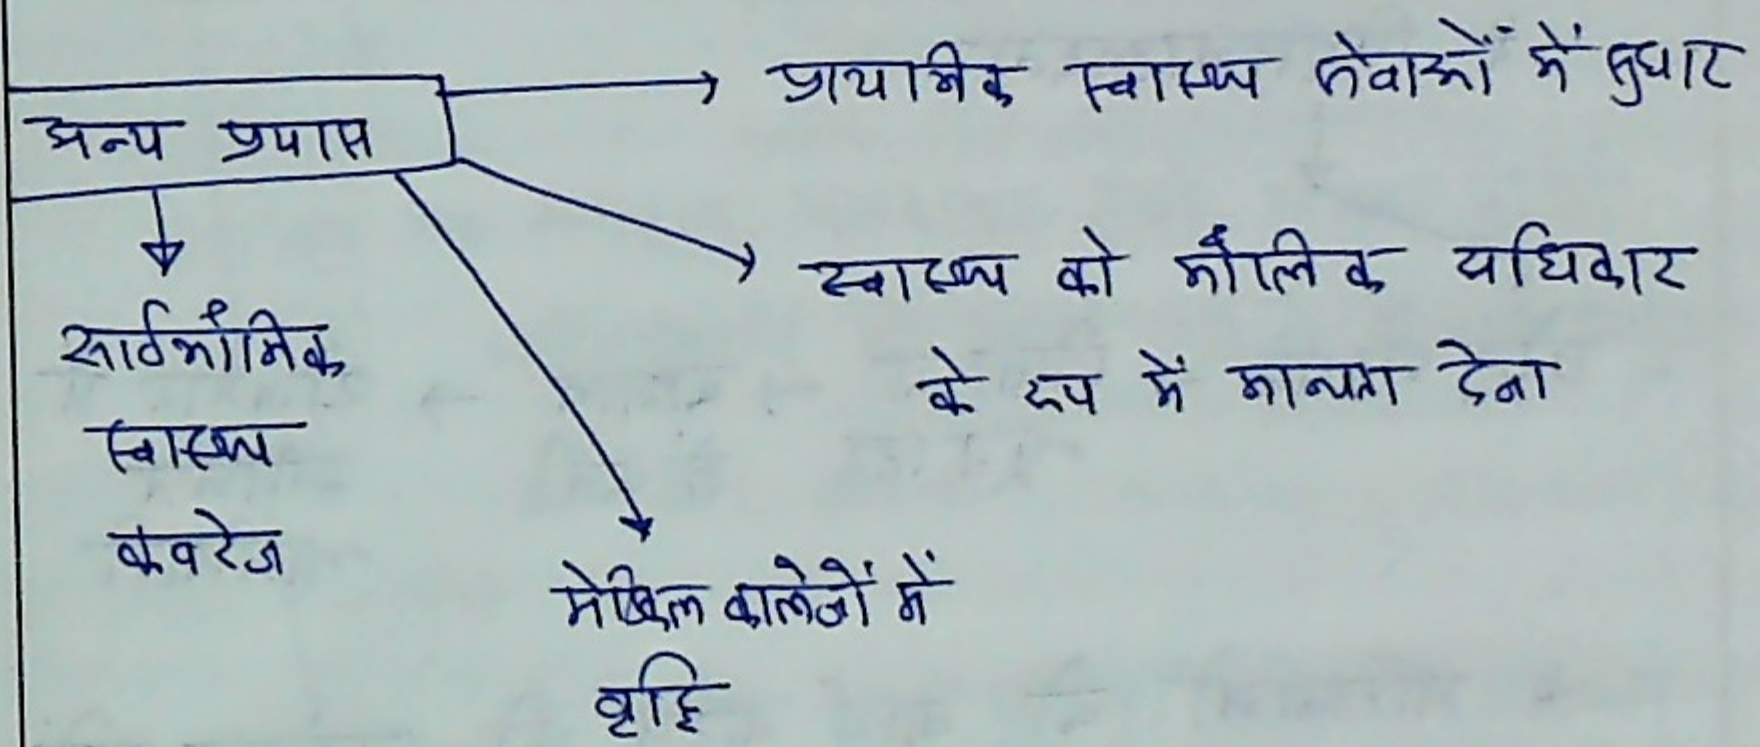 अन्य प्रयास
प्राथमिक स्वास्थ्य सेवाओं में सुधार
स्वास्थ्य को मौलिक अधिकार
के रूप में मान्यता देना
सार्वभौमिक
स्वास्थ्य
कवरेज
मेडिकल कालेजों में
वृद्धि